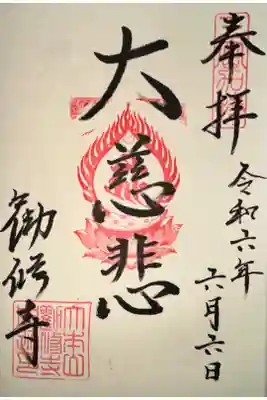 奉拝
令和六年
六月六日
大慈悲
勧修寺